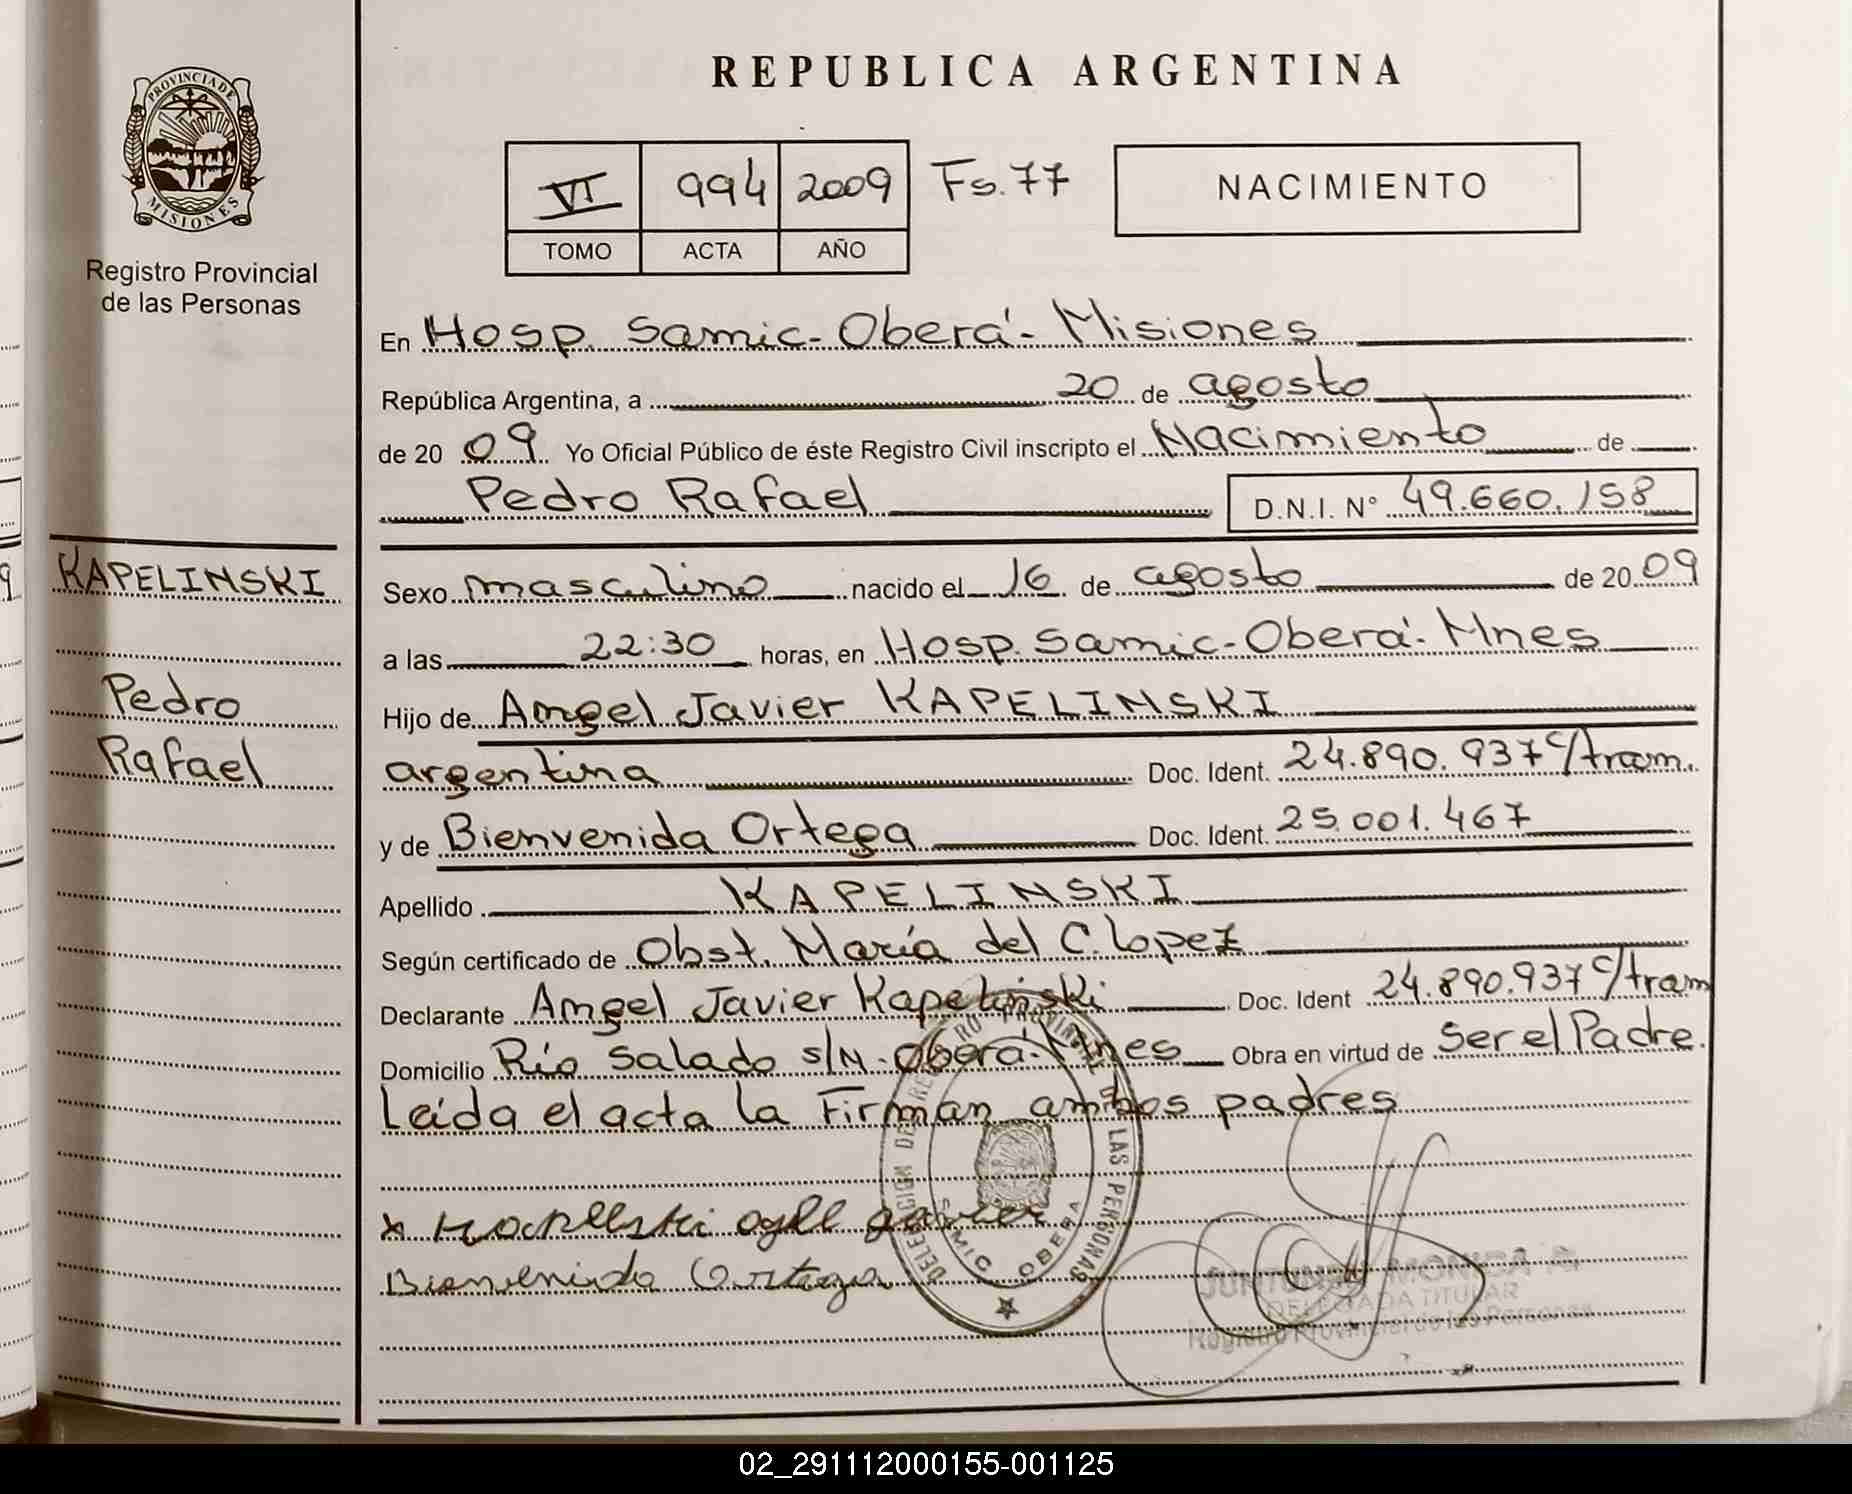 PROVINCIA DE
MISIONES
Registro Provincial
de las Personas
KAPELINSKI
Pedro
Rafael
REPUBLICA ARGENTINA
VI 994 2009 Fs. 77
TOMO ACTA AÑO
NACIMIENTO
En Hosp. Samic - Oberá - Misiones
República Argentina, a 20 de agosto
de 2009 Yo Oficial Público de éste Registro Civil inscripto el Nacimiento de
Pedro Rafael D.N.I. N° 49.660.158
Sexo masculino nacido el 16 de agosto de 2009
a las 22:30 horas, en Hosp. Samic - Oberá - Mnes
Hijo de Angel Javier KAPELINSKI
argentina Doc. Ident. 24.890.937 c/tram.
y de Bienvenida Ortega Doc. Ident. 25.001.467
Apellido KAPELINSKI
Según certificado de Obst. María del C. Lopez
Declarante Angel Javier Kapelinski Doc. Ident 24.890.937 c/tram
Domicilio Río Salado s/N - Oberá - Mnes Obra en virtud de Ser el Padre.
Leída el acta la Firman ambos padres
Bienvenida Ortega
DELEGACION DEL REGISTRO PROVINCIAL DE LAS PERSONAS
SAMIC OBERA
MONICA
DELEGADA TITULAR
Registro Provincial de las Personas
02_291112000155-001125